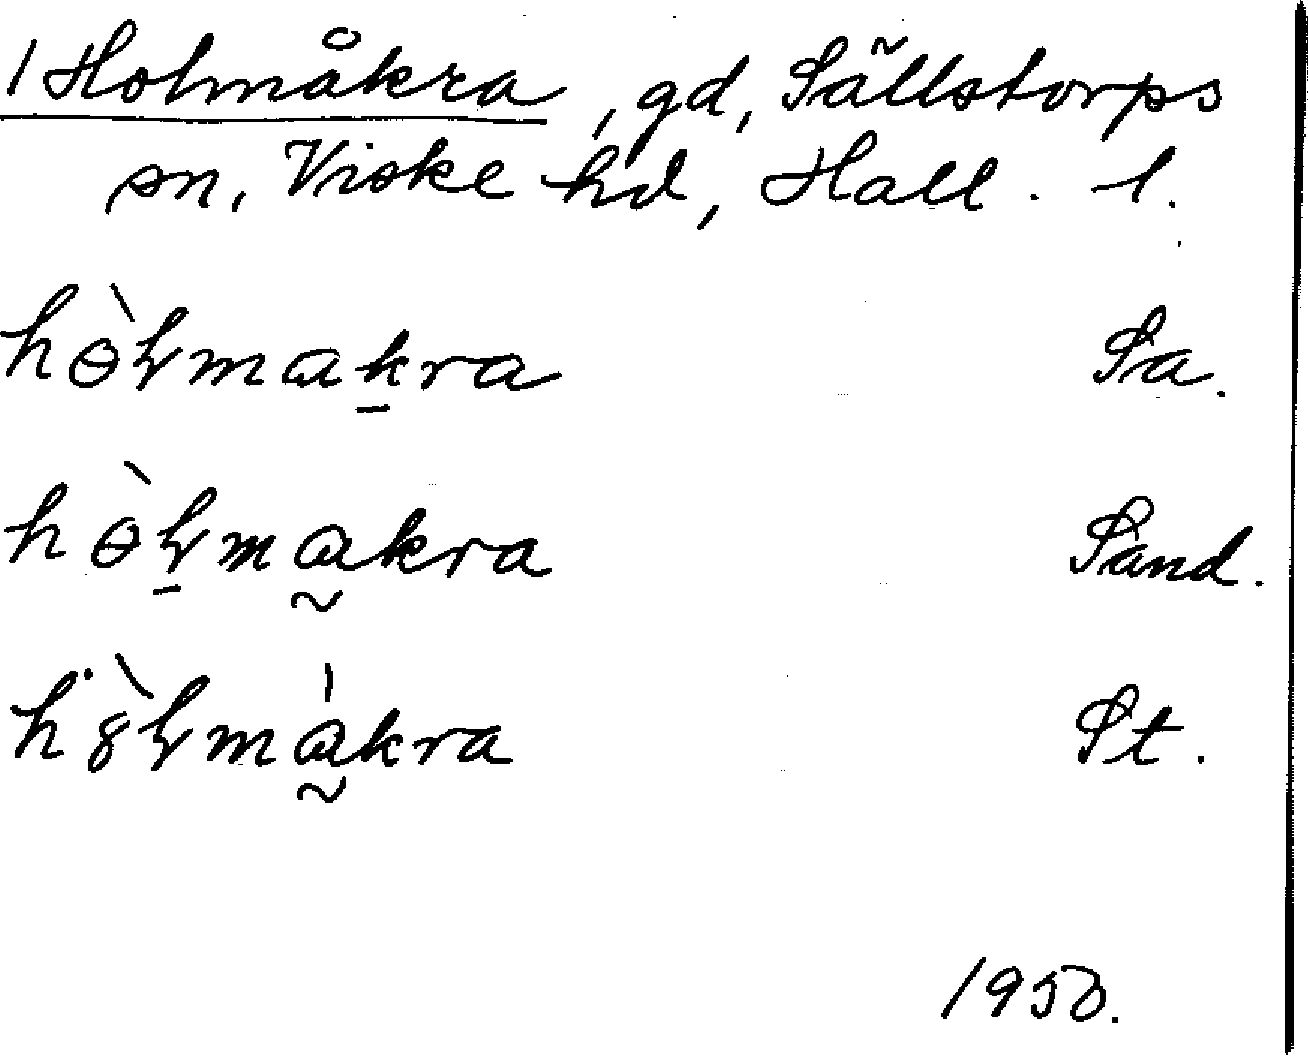 1 Holmåkra, gd, Sällstorps
sn, Viske hd, Hall. l.
hɵ̀ɫmak̠ra Sa.
hɵ̀ɫ̠ma̰kra Sand.
ḣ8̀ɫma̰̍kra St.
1953.